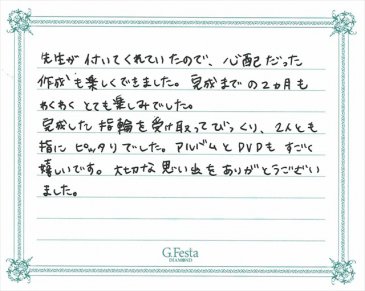 先生が付いてくれていたので、心配だった
作成も楽しくできました。完成までの2ヵ月も
わくわくとても楽しみでした。
完成した指輪を受け取ってびっくり、2人とも
指にピッタリでした。アルバムとDVDもすごく
嬉しいです。大切な思い出をありがとうござい
ました。
G.Festa
DIAMOND